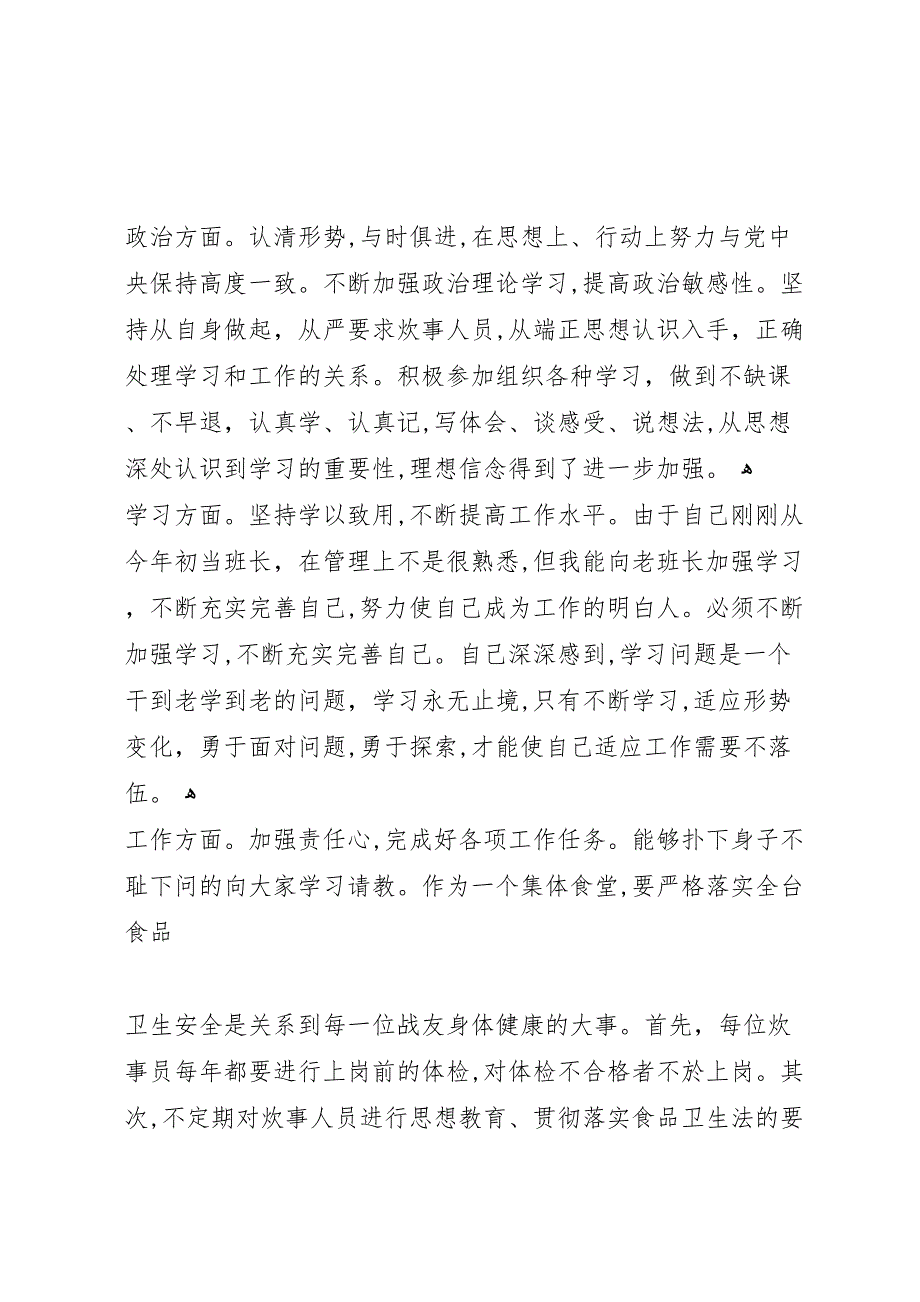 政治方面。认清形势,与时俱进,在思想上、行动上努力与党中
央保持高度一致。不断加强政治理论学习,提高政治敏感性。坚
持从自身做起，从严要求炊事人员,从端正思想认识入手，正确
处理学习和工作的关系。积极参加组织各种学习，做到不缺课
、不早退，认真学、认真记,写体会、谈感受、说想法,从思想
深处认识到学习的重要性,理想信念得到了进一步加强。 ﻫ
学习方面。坚持学以致用,不断提高工作水平。由于自己刚刚从
今年初当班长，在管理上不是很熟悉,但我能向老班长加强学习
，不断充实完善自己,努力使自己成为工作的明白人。必须不断
加强学习,不断充实完善自己。自己深深感到,学习问题是一个
干到老学到老的问题，学习永无止境,只有不断学习,适应形势
变化，勇于面对问题,勇于探索,才能使自己适应工作需要不落
伍。 ﻫ
工作方面。加强责任心,完成好各项工作任务。能够扑下身子不
耻下问的向大家学习请教。作为一个集体食堂,要严格落实全台
食品
卫生安全是关系到每一位战友身体健康的大事。首先，每位炊
事员每年都要进行上岗前的体检,对体检不合格者不於上岗。其
次,不定期对炊事人员进行思想教育、贯彻落实食品卫生法的要